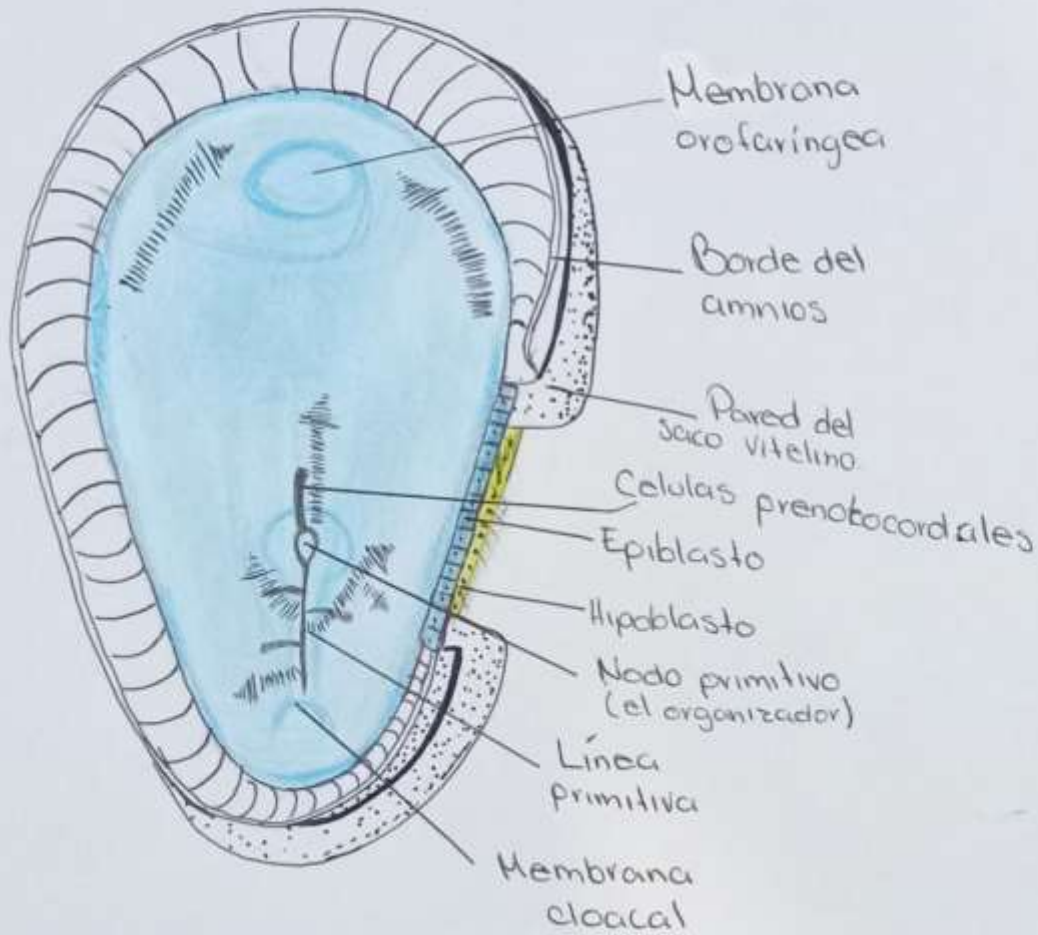 Membrana
orofaríngea
Borde del
amnios
Pared del
saco vitelino
Celulas prenotocordales
Epiblasto
Hipoblasto
Nodo primitivo
(el organizador)
Línea
primitiva
Membrana
cloacal